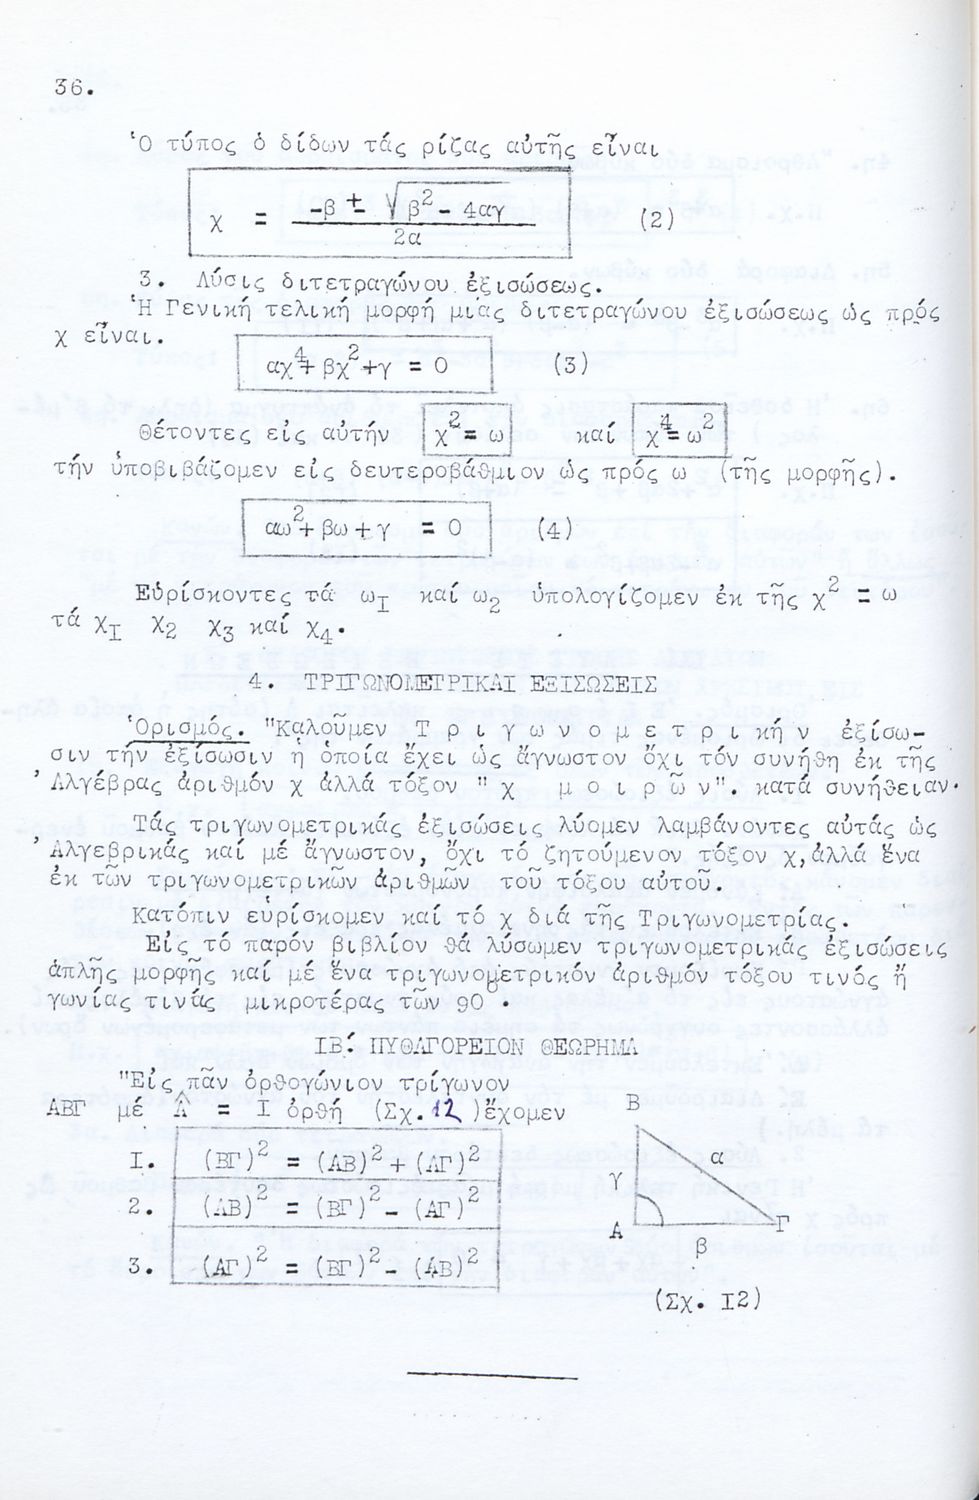 36.
Ὁ τύπος ὁ δίδων τάς ρίζας αὐτῆς εἶναι
χ = -β ± √β² - 4αγ / 2α (2)
3. Λύσις διτετραγώνου ἐξισώσεως.
Ἡ Γενική τελική μορφή μιᾶς διτετραγώνου ἐξισώσεως ὡς πρός
χ εἶναι.
αχ⁴+ βχ²+γ = 0 (3)
Θέτοντες εἰς αὐτήν χ² = ω καί χ⁴ = ω²
τήν ὑποβιβάζομεν εἰς δευτεροβάθμιον ὡς πρός ω (τῆς μορφῆς).
αω²+ βω + γ = 0 (4)
Εὑρίσκοντες τά ω₁ καί ω₂ ὑπολογίζομεν ἐκ τῆς χ² = ω
τά χ₁ χ₂ χ₃ καί χ₄.
4. ΤΡΙΓΩΝΟΜΕΤΡΙΚΑΙ ΕΞΙΣΩΣΕΙΣ
Ὁρισμός. "Καλοῦμεν Τ ρ ι γ ω ν ο μ ε τ ρ ι κή ν ἐξίσω-
σιν τήν ἐξίσωσιν ἡ ὁποία ἔχει ὡς ἄγνωστον ὄχι τόν συνήθη ἐκ τῆς
Ἀλγέβρας ἀριθμόν χ ἀλλά τόξον " χ μ ο ι ρ ῶ ν ". κατά συνήθειαν.
Τάς τριγωνομετρικάς ἐξισώσεις λύομεν λαμβάνοντες αὐτάς ὡς
Ἀλγεβρικάς καί μέ ἄγνωστον, ὄχι τό ζητούμενον τόξον χ, ἀλλά ἕνα
ἐκ τῶν τριγωνομετρικῶν ἀριθμῶν τοῦ τόξου αὐτοῦ.
Κατόπιν εὑρίσκομεν καί τό χ διά τῆς Τριγωνομετρίας.
Εἰς τό παρόν βιβλίον θά λύσωμεν τριγωνομετρικάς ἐξισώσεις
ἁπλῆς μορφῆς καί μέ ἕνα τριγωνομετρικόν ἀριθμόν τόξου τινός ἤ
γωνίας τινάς μικροτέρας τῶν 90 .
ΙΒ: ΠΥΘΑΓΟΡΕΙΟΝ ΘΕΩΡΗΜΑ
"Εἰς πᾶν ὀρθογώνιον τρίγωνον
ΑΒΓ μέ Α̂ = Ι ὀρθή (Σχ. 12 )ἔχομεν
Ι. (ΒΓ)² = (ΑΒ)² + (ΑΓ)²
2. (ΑΒ)² = (ΒΓ)² - (ΑΓ)²
3. (ΑΓ)² = (ΒΓ)² - (ΑΒ)²
Β
α
γ
Α
Γ
β
(Σχ. Ι2)